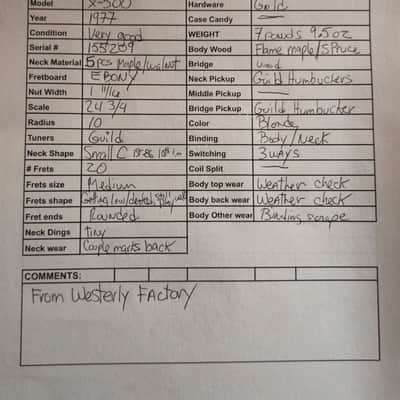 Model X-500 Hardware Gold
Year 1977 Case Candy —
Condition Very good WEIGHT 7 pounds 9.5 oz
Serial # 155209 Body Wood Flame maple/Spruce
Neck Material 5 pcs Maple/walnut Bridge wood
Fretboard EBONY Neck Pickup Guild Humbuckers
Nut Width 1 11/16 Middle Pickup —
Scale 24 3/4 Bridge Pickup Guild Humbucker
Radius 10 Color Blonde
Tuners Guild Binding Body/Neck
Neck Shape Small C Switching 3 WAYS
# Frets 20 Coil Split —
Frets size Medium Body top wear Weather check
Frets shape Getting low/ Body back wear Weather check
Fret ends Rounded Body Other wear Binding
Neck Dings tiny
Neck wear Couple marks back
COMMENTS:
From Westerly Factory